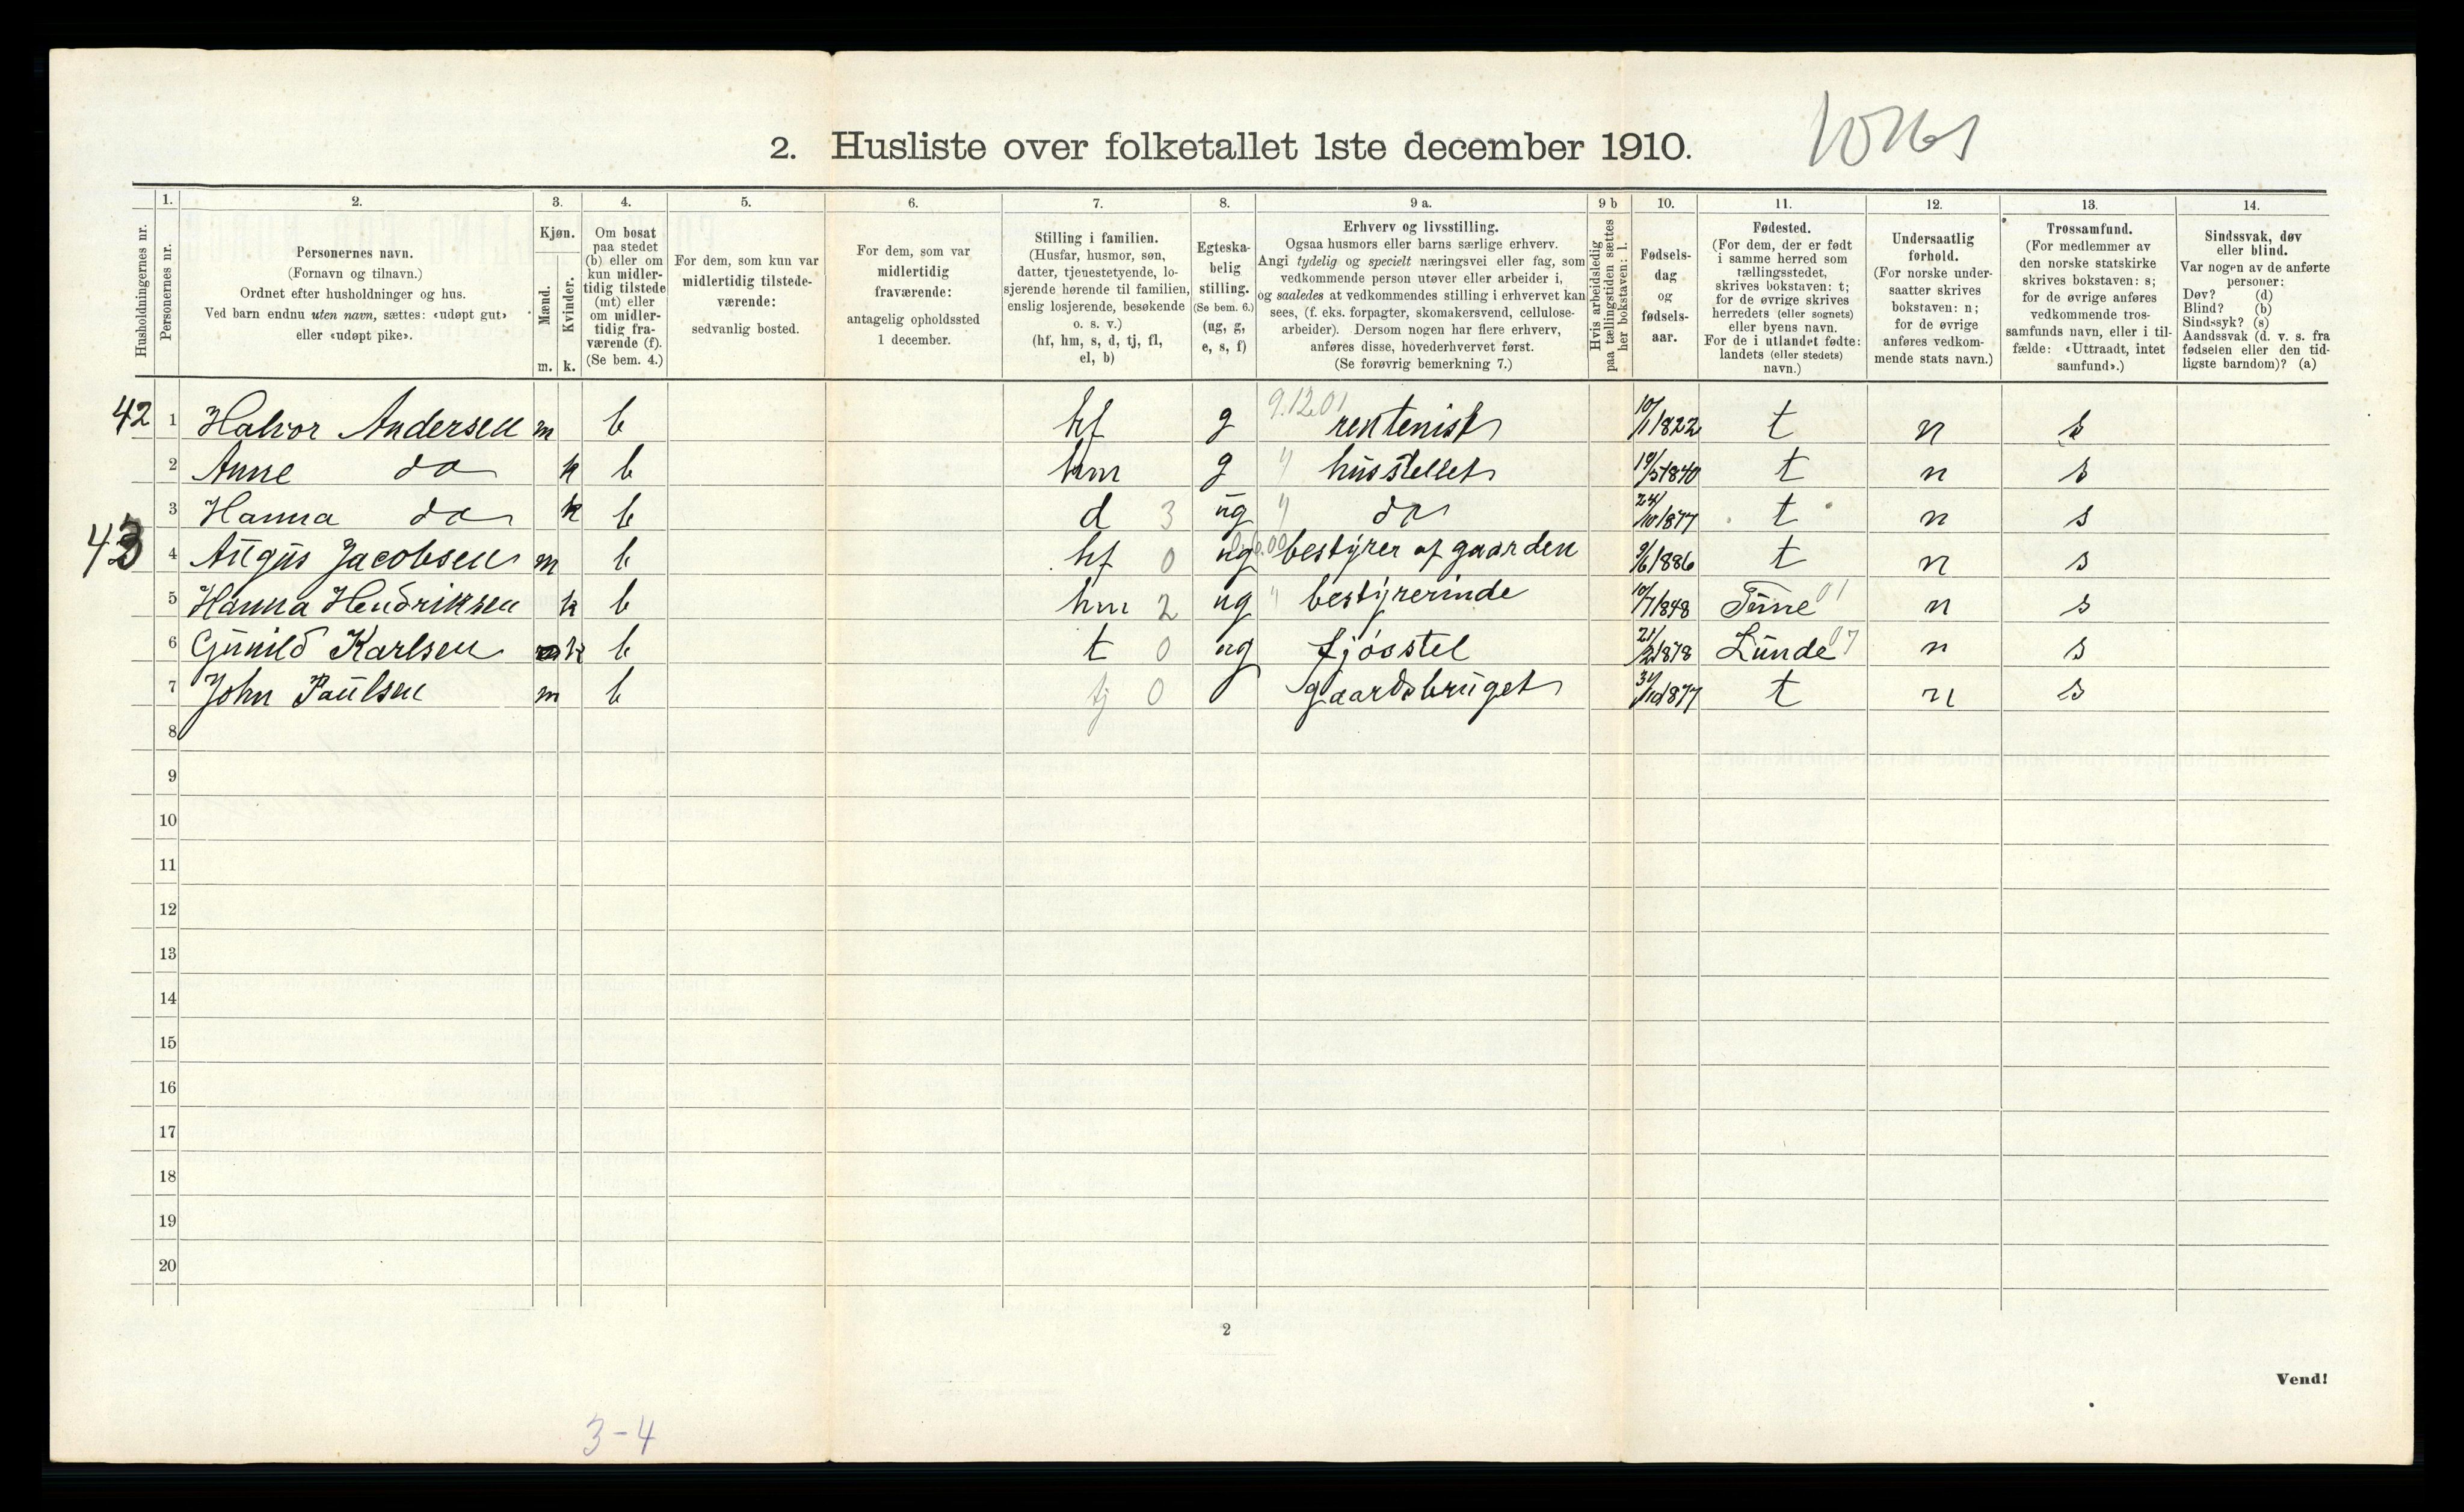 2. Husliste over folketallet 1ste december 1910.
Husholdningernes nr.
1. Personernes nr.
2. Personernes navn.
(Fornavn og tilnavn.)
Ordnet efter husholdninger og hus.
Ved barn endnu uten navn, sættes: «udøpt gut»
eller «udøpt pike».
3. Kjøn.
Mænd. m.
Kvinder. k.
4. Om bosat
paa stedet
(b) eller om
kun midler-
tidig tilstede
(mt) eller
om midler-
tidig fra-
værende (f).
(Se bem. 4.)
5. For dem, som kun var
midlertidig tilstede-
værende:
sedvanlig bosted.
6. For dem, som var
midlertidig
fraværende:
antagelig opholdssted
1 december.
7. Stilling i familien.
(Husfar, husmor, søn,
datter, tjenestetyende, lo-
sjerende hørende til familien,
enslig losjerende, besøkende
o. s. v.)
(hf, hm, s, d, tj, fl,
el, b)
8. Egteska-
belig
stilling.
(Se bem. 6.)
(ug, g,
e, s, f)
9 a. Erhverv og livsstilling.
Ogsaa husmors eller barns særlige erhverv.
Angi tydelig og specielt næringsvei eller fag, som
vedkommende person utøver eller arbeider i,
og saaledes at vedkommendes stilling i erhvervet kan
sees, (f. eks. forpagter, skomakersvend, cellulose-
arbeider). Dersom nogen har flere erhverv,
anføres disse, hovederhvervet først.
(Se forøvrig bemerkning 7.)
9 b Hvis arbeidsledig
paa tællingstiden sættes
her bokstaven: l.
10. Fødsels-
dag
og
fødsels-
aar.
11. Fødested.
(For dem, der er født
i samme herred som
tællingsstedet,
skrives bokstaven: t;
for de øvrige skrives
herredets (eller sognets)
eller byens navn.
For de i utlandet fødte:
landets (eller stedets)
navn.)
12. Undersaatlig
forhold.
(For norske under-
saatter skrives
bokstaven: n;
for de øvrige
anføres vedkom-
mende stats navn.)
13. Trossamfund.
(For medlemmer av
den norske statskirke
skrives bokstaven: s;
for de øvrige anføres
vedkommende tros-
samfunds navn, eller i til-
fælde: «Uttraadt, intet
samfund».)
14. Sindssvak, døv
eller blind.
Var nogen av de anførte
personer:
Døv? (d)
Blind? (b)
Sindssyk? (s)
Aandssvak (d. v. s. fra
fødselen eller den tid-
ligste barndom)? (a)
42 1 Halvor Andersen m b hf g 9.12.01 rentenist 10/1 1822 t n s
2 Anne do k b hm g " husstellet 19/5 1840 t n s
3 Hanna do k b d 3 ug " do 24/10 1877 t n s
43 4 Augus Jacobsen m b hf 0 ug bestyrer af gaarden 9/6 1886 t n s
5 Hanna Hendriksen k b hm 2 ug " bestyrerinde 10/7 1848 Tinne 01 n s
6 Gunild Karlsen k b t 0 ug fjøsstel 21/2 1878 Lunde 07 n s
7 John Paulsen m b tj 0 gaardsbruget 31/10 1877 t n s
8
9
10
11
12
13
14
15
16
17
18
19
20
2
Vend!
3-4